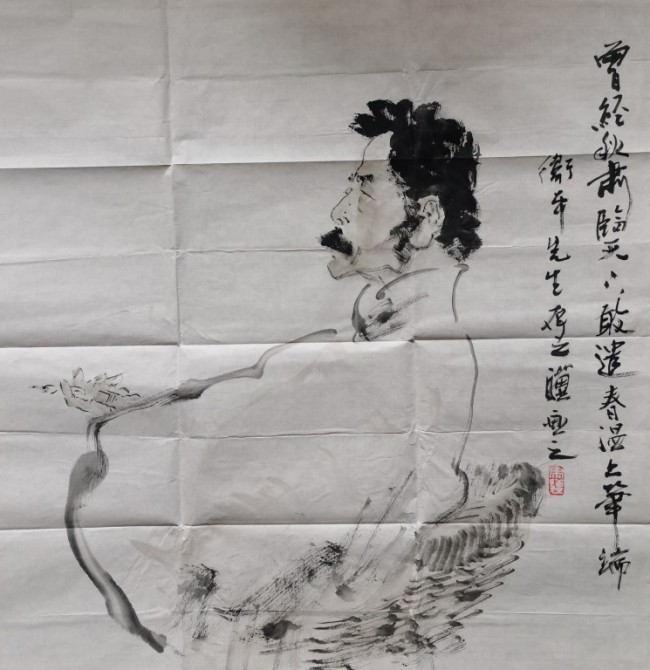 曾經秋肅臨天下敢遣春温上筆端
衛平先生屬之驥画之